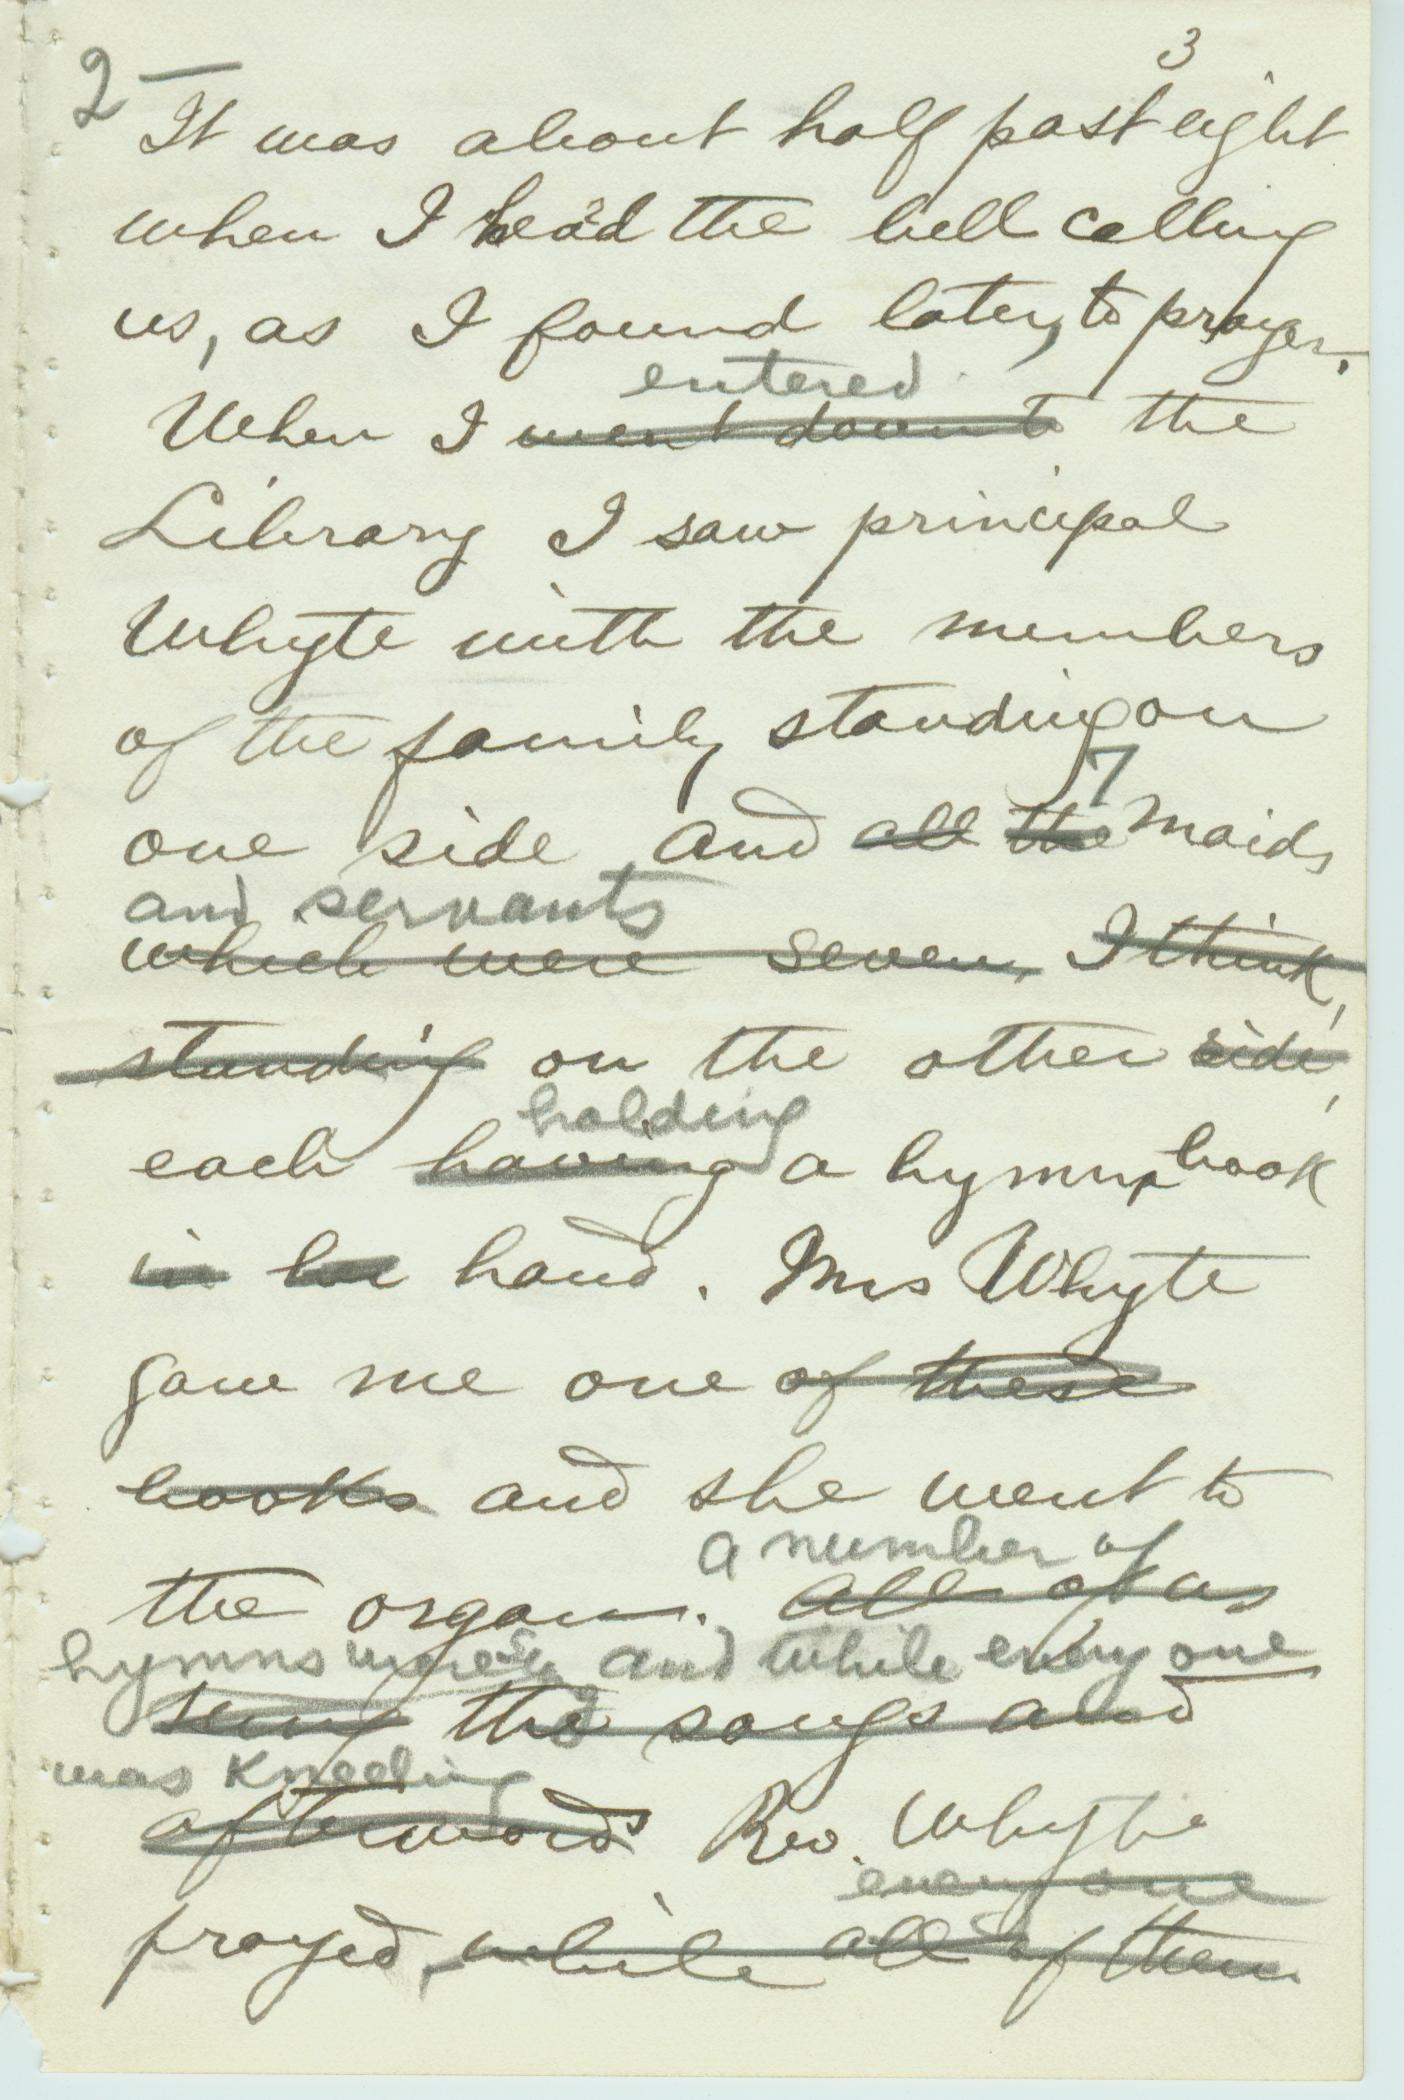 3
2 —
It was about half past eight
when I heard the bell calling
us, as I found later, to prayer.
entered
When I went down to the
Library I saw principal
Whyte with the members
of the family standing on
7
one side and all the maids
and servants
which were seven, I think,
standing on the other side,
holding
each having a hymn book
in hand. Mrs Whyte
gave me one of these
books and she went to
a number of
the organ. All of us
hymns were and while every one
sung the songs and
was kneeling
afterwards Rev. Whyte
every one
prayed, while all of them